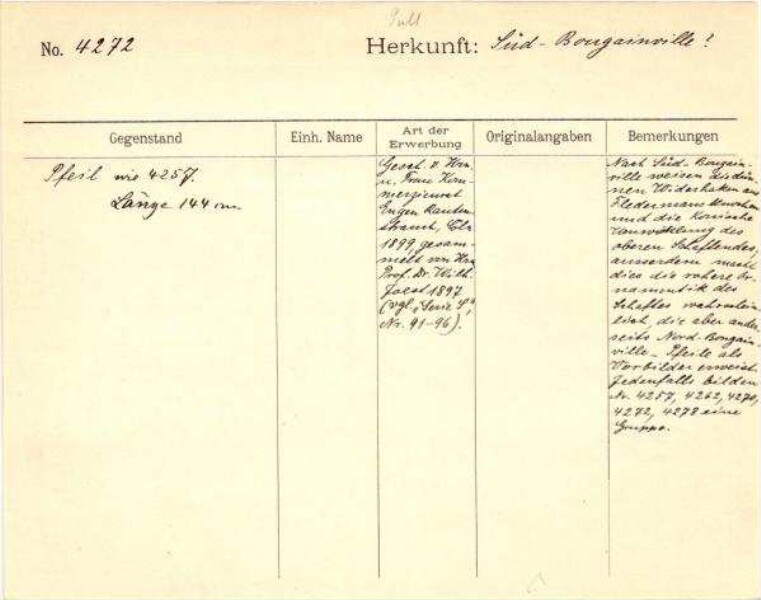 No. 4272
Herkunft: Süd-Bougainville!
Gegenstand
Einh. Name
Art der
Erwerbung
Originalangaben
Bemerkungen
Pfeil wie 4257.
Länge 144 cm
Gesch. v. Hrn.
u. Frau Kom-
merzienrat
Eugen Rauten-
strauch, Cln
1899, gesam-
melt von Hrn.
Prof. Dr. Wilh.
Joest 1897
(vgl. „Serie S“,
Nr. 91-96).
Nach Süd-Bougain-
ville weisen die dün-
nen Widerhaken aus
Fledermausknochen
und die konische
Umwicklung des
oberen Schaftendes,
ausserdem macht
dies die rohere Or-
namentik des
Schaftes wahrschein-
lich, die aber ander-
seits Nord-Bougain-
ville-Pfeile als
Vorbilder erweist.
Jedenfalls bilden
Nr. 4257, 4262, 4270,
4272, 4278 eine
Gruppe.